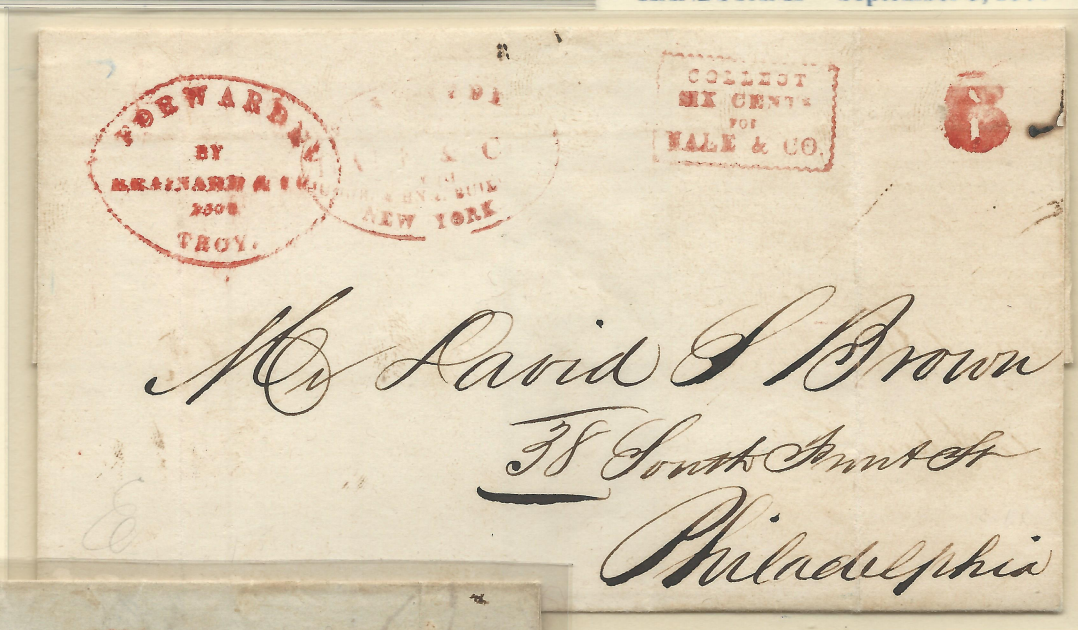 FORWARDED
BY
BRAINARD & CO.
TROY.
& C
NEW YORK
COLLECT
SIX CENTS
FOR
HALE & CO.
6
Mr David S Brown
38 South Front St
Philadelphia